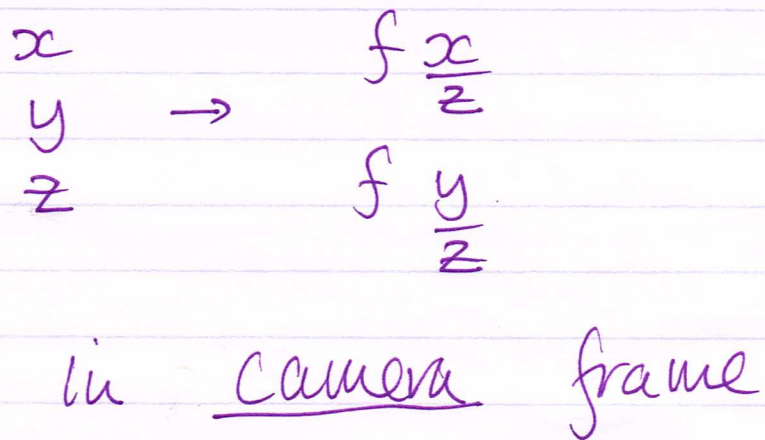 x
y → f x/z
z f y/z
in camera frame